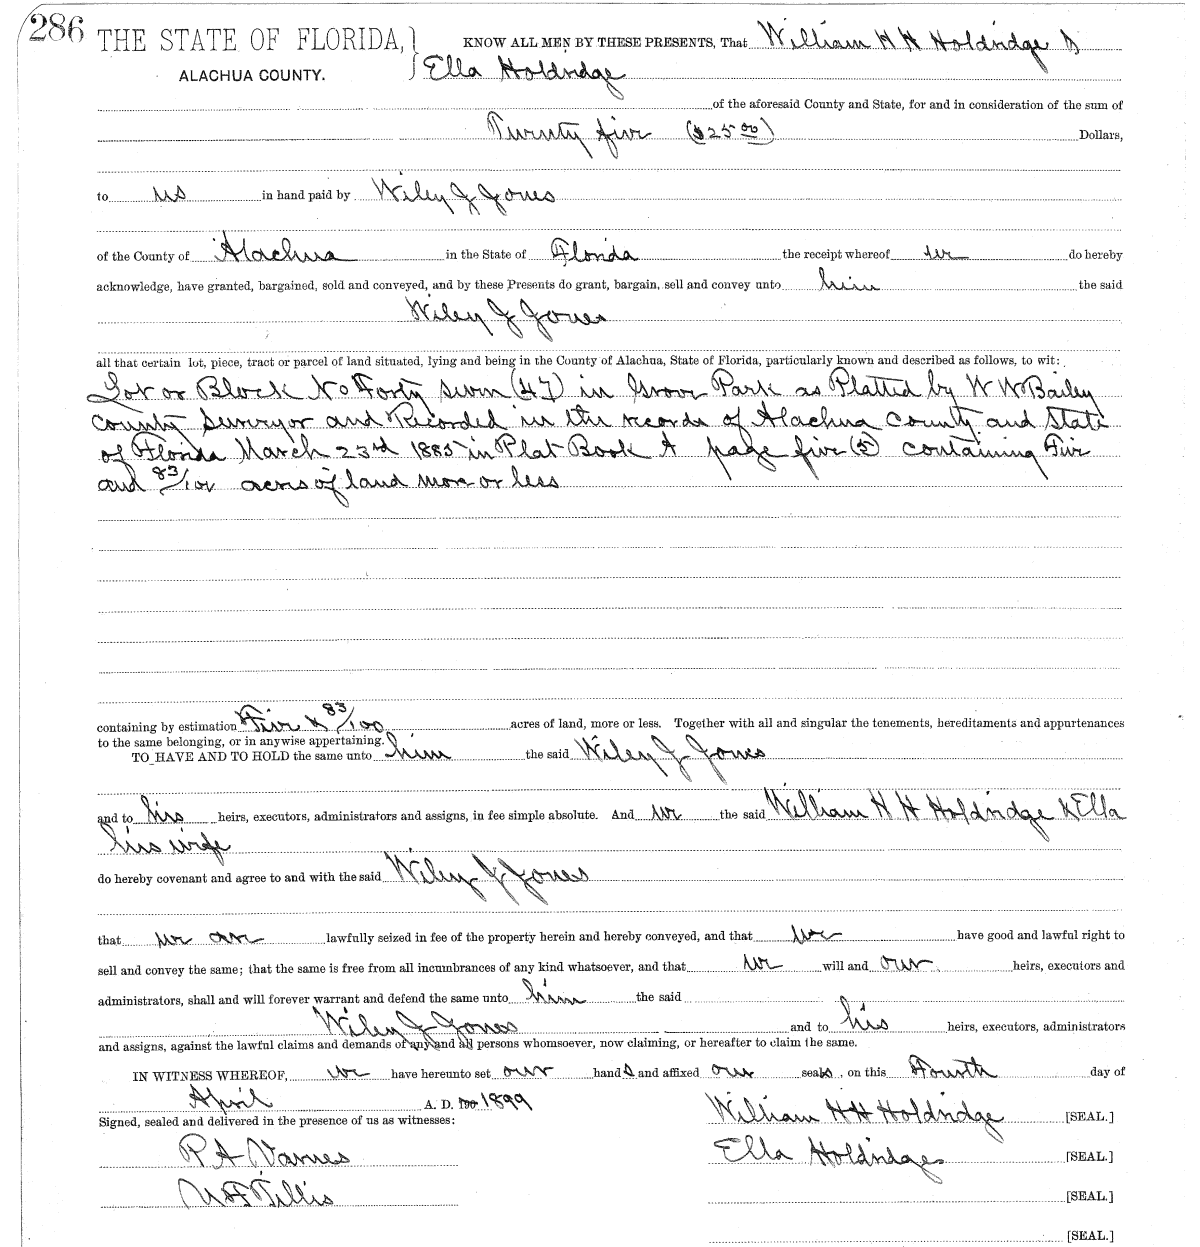 286 THE STATE OF FLORIDA, KNOW ALL MEN BY THESE PRESENTS, That William H H Holdridge &
ALACHUA COUNTY. Ella Holdridge
of the aforesaid County and State, for and in consideration of the sum of
Twenty five ($25 00) Dollars,
to us in hand paid by Wiley J Jones
of the County of Alachua in the State of Florida the receipt whereof we do hereby
acknowledge, have granted, bargained, sold and conveyed, and by these Presents do grant, bargain, sell and convey unto him the said
Wiley J Jones
all that certain lot, piece, tract or parcel of land situated, lying and being in the County of Alachua, State of Florida, particularly known and described as follows, to wit:
Lot or Block No Forty seven (47) in Grove Park as Platted by W W Bailey
County Surveyor and Recorded in the records of Alachua County and State
of Florida March 23rd 1885 in Plat Book A page five (5) containing Five
and 83/100 acres of land more or less
containing by estimation Five & 83/100 acres of land, more or less. Together with all and singular the tenements, hereditaments and appurtenances
to the same belonging, or in anywise appertaining.
TO HAVE AND TO HOLD the same unto him the said Wiley J Jones
and to his heirs, executors, administrators and assigns, in fee simple absolute. And we the said William H H Holdridge & Ella
his wife
do hereby covenant and agree to and with the said Wiley J Jones
that we are lawfully seized in fee of the property herein and hereby conveyed, and that we have good and lawful right to
sell and convey the same; that the same is free from all incumbrances of any kind whatsoever, and that we will and our heirs, executors and
administrators, shall and will forever warrant and defend the same unto him the said
Wiley J Jones and to his heirs, executors, administrators
and assigns, against the lawful claims and demands of any and all persons whomsoever, now claiming, or hereafter to claim the same.
IN WITNESS WHEREOF, we have hereunto set our hands and affixed our seals, on this Fourth day of
April A. D. 1899 William H H Holdridge [SEAL.]
Signed, sealed and delivered in the presence of us as witnesses:
R A Varnes Ella Holdridge [SEAL.]
Tillis [SEAL.]
[SEAL.]